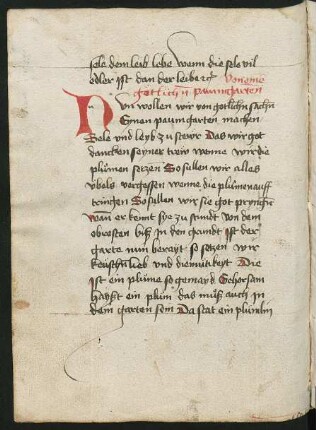 sele dem leib lebe wenn die sele vil
edler ist dan der leiber
von eine
gotlichn paumgarten
Nun wollen wir von gotlichn sachn
Einen paumgarten machen
Sele und leyb zu stewr Das wir got
dancken seyner trew wenne wir die
plumen setzen So sullen wir alles
ubels vergessen wenne die plumen auff
dringen So sullen wir sie got pringen
wan er kennt sie zu stundt von dem
obrosten biß in den grundt ist der
garte nun berayt so setzen wir
keuschn lieb und diemutikeyt Die
ist ein plume so gemayd Gehorsam
haysst ein plum das muß auch in
dem garten sein Da stat ein plumlin